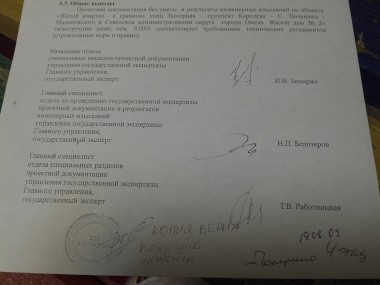 4.3. Общие выводы:
Проектная документация без сметы и результаты инженерных изысканий по объекту
«Жилой квартал в границах улиц Заозерная - проспект Королева - С. Тюленина -
Малиновского в Советском административном округе города Омска. Жилой дом № 2»
(конструкции ниже отм. 0.000) соответствуют требованиям технических регламентов
(строительных норм и правил).
Начальник отдела
специальных разделов проектной документации
управления государственной экспертизы
Главного управления,
государственный эксперт
Главный специалист
отдела по проведению государственной экспертизы
проектной документации и результатов
инженерных изысканий
управления государственной экспертизы
Главного управления,
государственный эксперт
Н.П. Белозеров
Главный специалист
отдела специальных разделов
проектной документации
управления государственной экспертизы
Главного управления,
государственный эксперт
Т.В. Работницкая
КОПИЯ ВЕРНА
ведущий
инженер
19 08 09